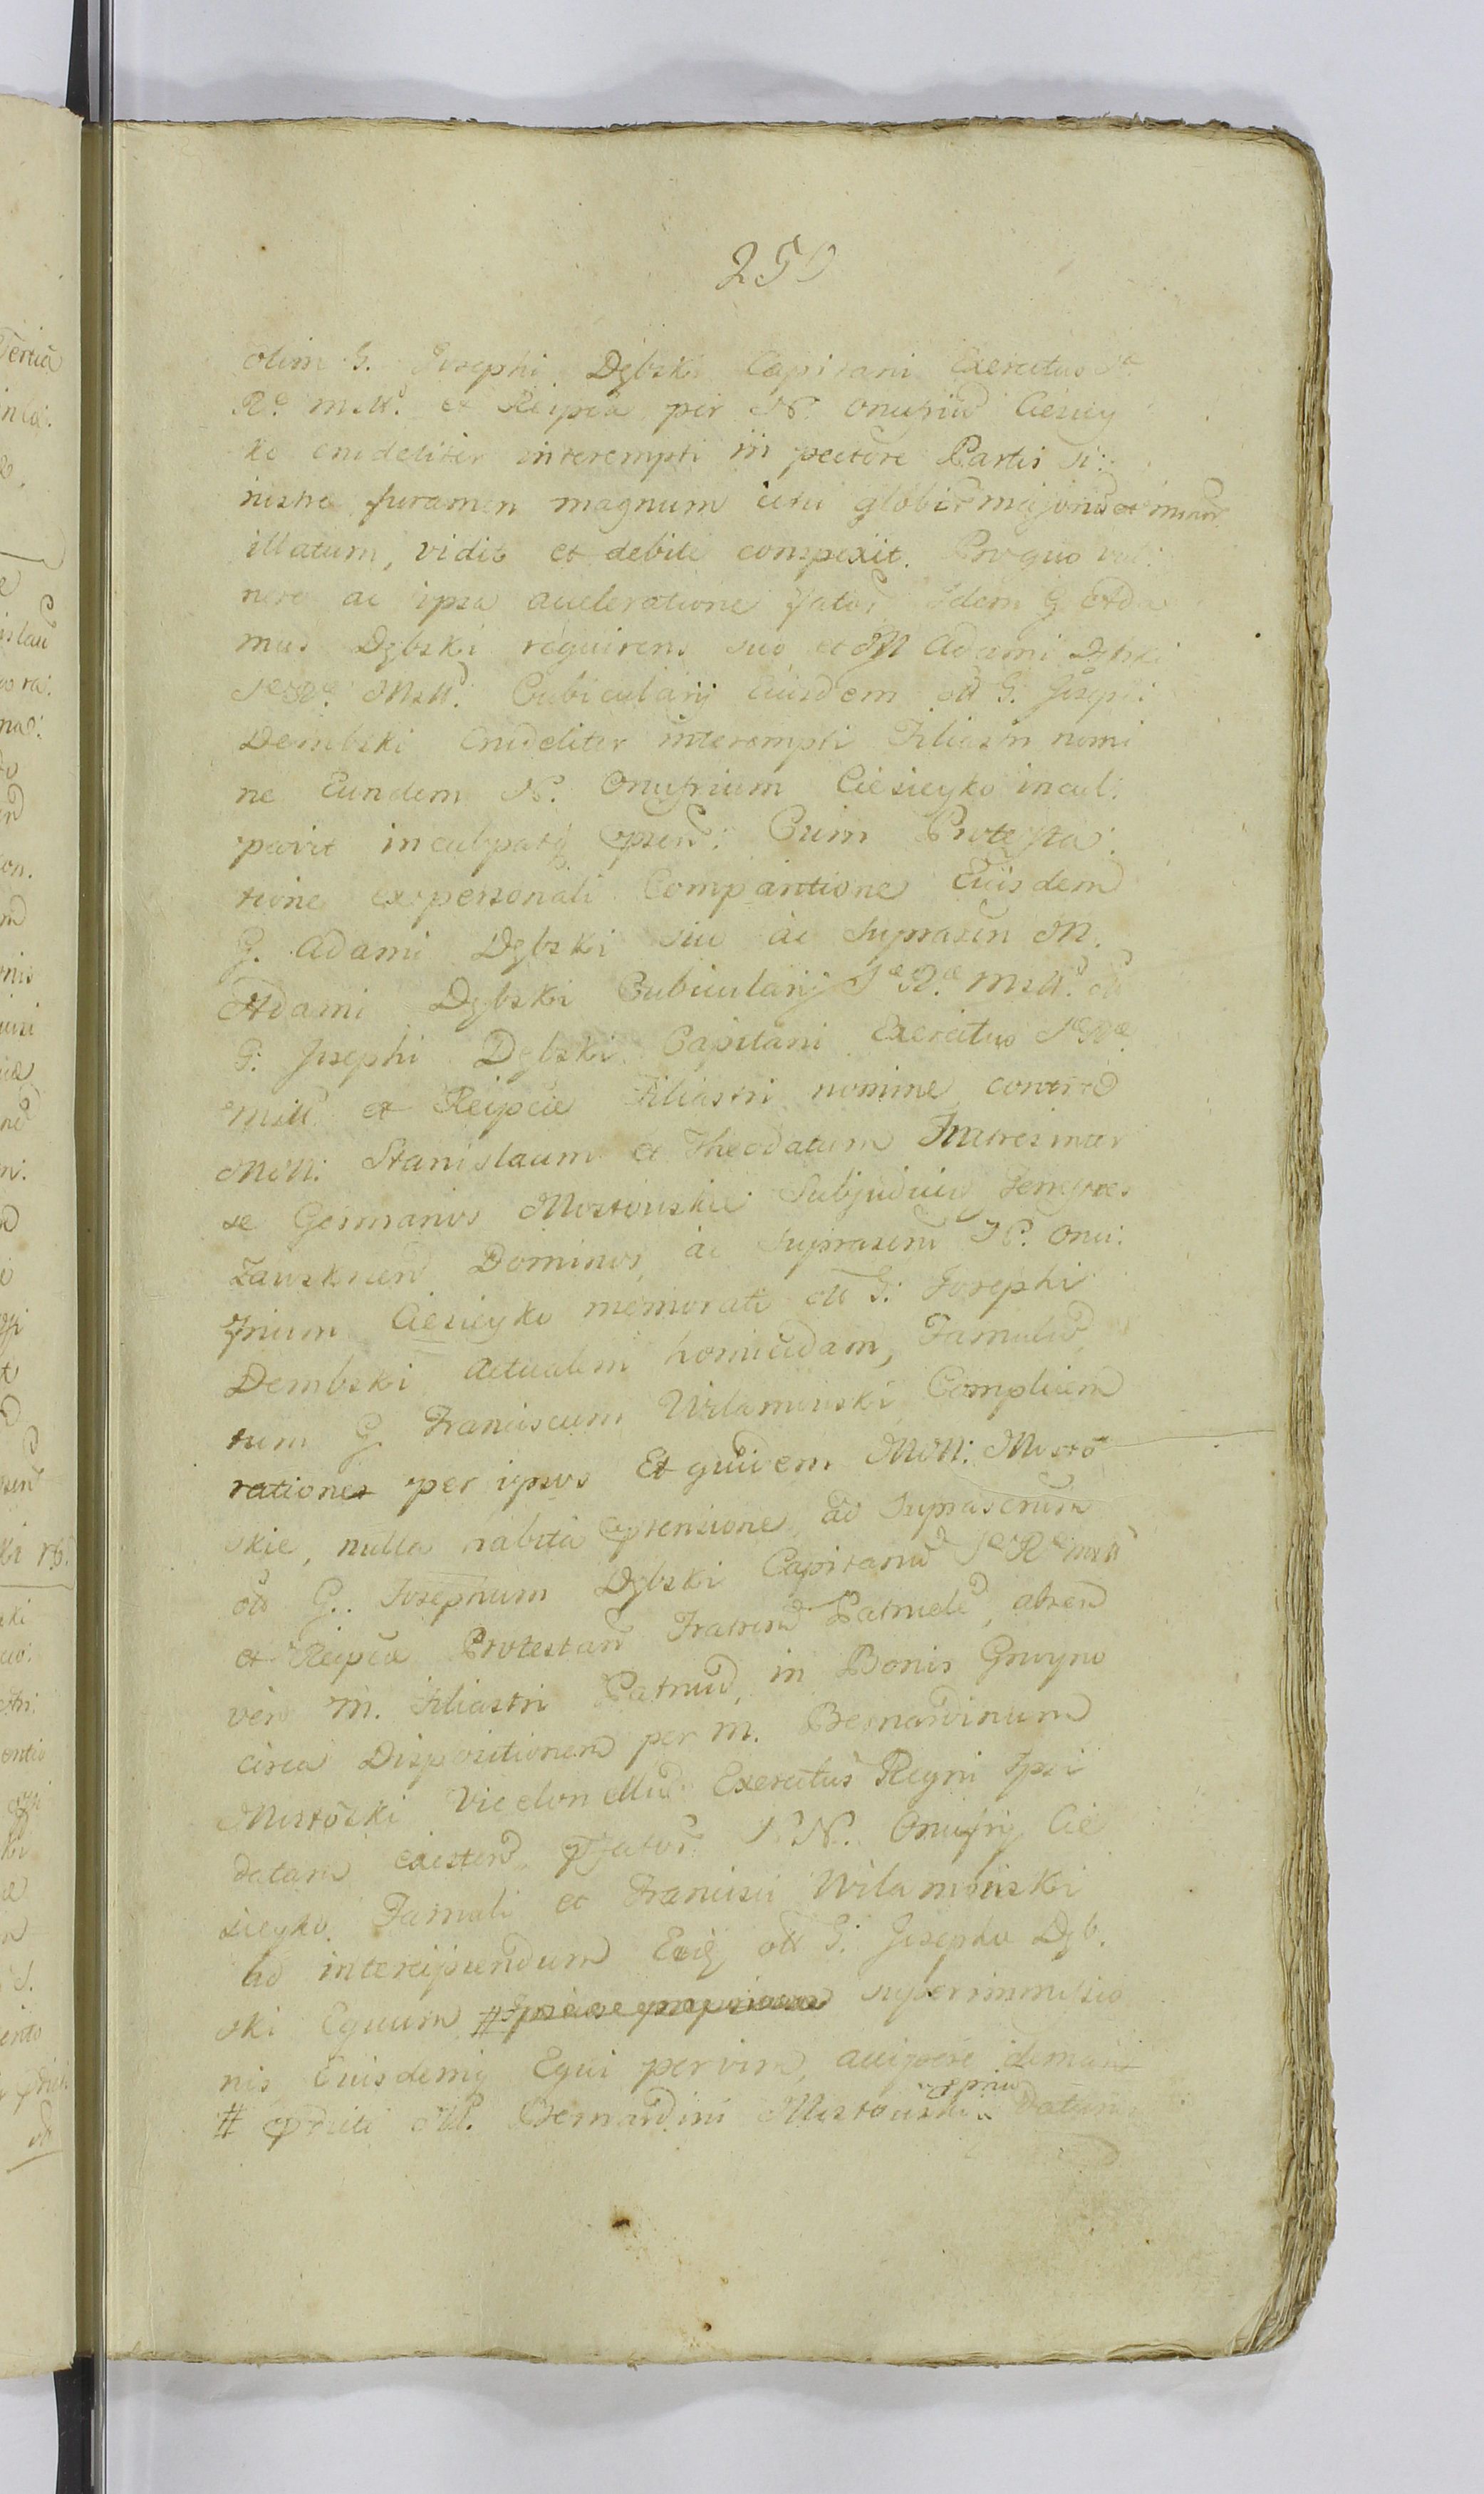 250
olim G. Josephi Dębski Capitani Exercitus Sae
Rae Mtts. et Reipcae per N. Onufriũ Ciesiey
ko crudeliter interempti in pectore Partis si:
nistra furamen magnum ictu globi majoris et minor
illatum, vidit et debite conspexit. Pro quo vul:
nere ac ipsa acceleratione fator. Idem G. Ada
mus Dębski requirens suo et M Adami Dębski
Sae Rae Mtts. Cubicularij Eiusdem olt G. Joseph:
Dembski Crudeliter interempti Filiastri nomi
ne Eundem N. Onufrium Ciesieyko incul:
pavit inculpatq pñtũ: Cum Protesta:
tione ex personali Comparitione Eiusdem
G. Adami Dębski sui ac suprascrn M.
Adami Dębski Cubicularij Sae Rae Mtts. olt
G: Josephi Dębski Capitani Exercitus Sae Rae
Mtts et Reipcae Filiastri nomine contra
MM: Stanislaum et Theodatum Fratres inter
se Germanos Mostowskie Subjudices Terrestres
Zawskrien Dominos, ac suprascrn N. Onu:
frium Ciesieyko memorati olt G: Josephi
Dembski Actualem homicidam, Famulũ,
tum G. Franciscum Wilamowski Complicem
ratione per ipsos Et quidem MM: Mosto
skie, nulla habita pretensione, ad Suprascrum
olt G. Josephum Dębski Capitanũ Sae Rae Mtts
et Reipcae Protestan Fratrem Patruelẽ, alterũ
vero M. Filiastri Patruũ, in Bonis Gruyno
circa Dispositionem per M. Bernardinum
Mostoski Vicelonellũ Exercitus Regni Ipsi
datam existen pfator. NN. Onufrij Cie
sieyko Famuli et Francisci Wilamowski
ad intercipiendum Eiq olt G. Josepho Dęb.
ski Equum # superimmissio
nis Eiusdemq Equi per vim, accipere deman
# pdicti M. Bernardini Mostowski datum